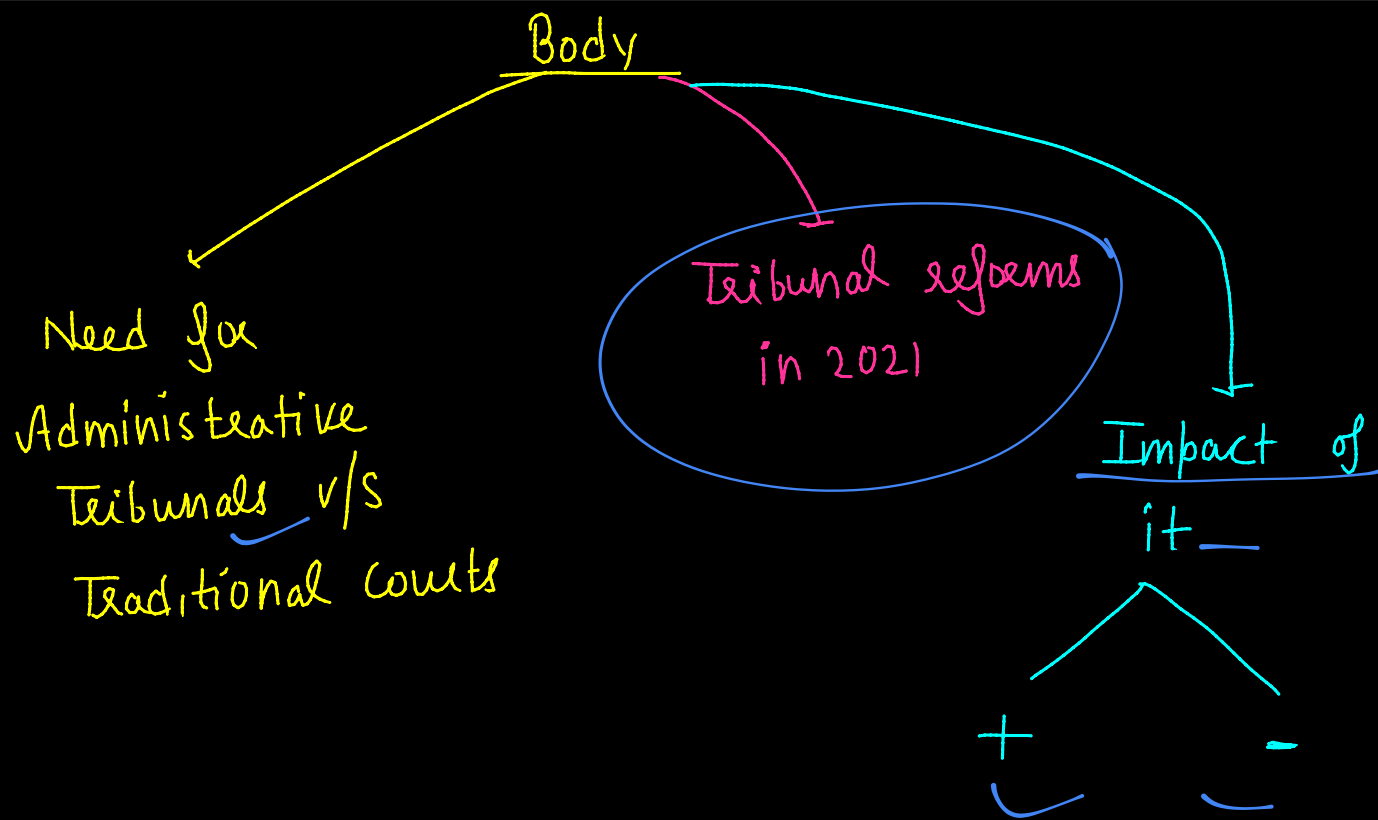 Body
Need for
Administrative
Tribunals v/s
Traditional Courts
Tribunal reforms
in 2021
Impact of
it
+
-